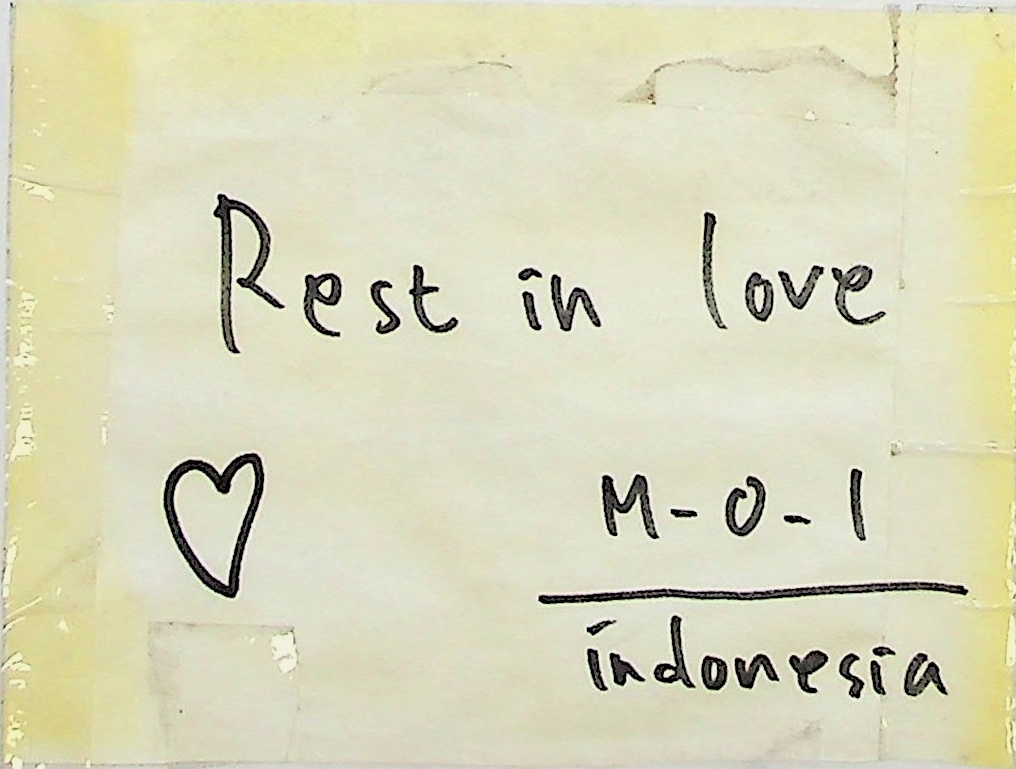 Rest in love
♡ M-O-I
indonesia